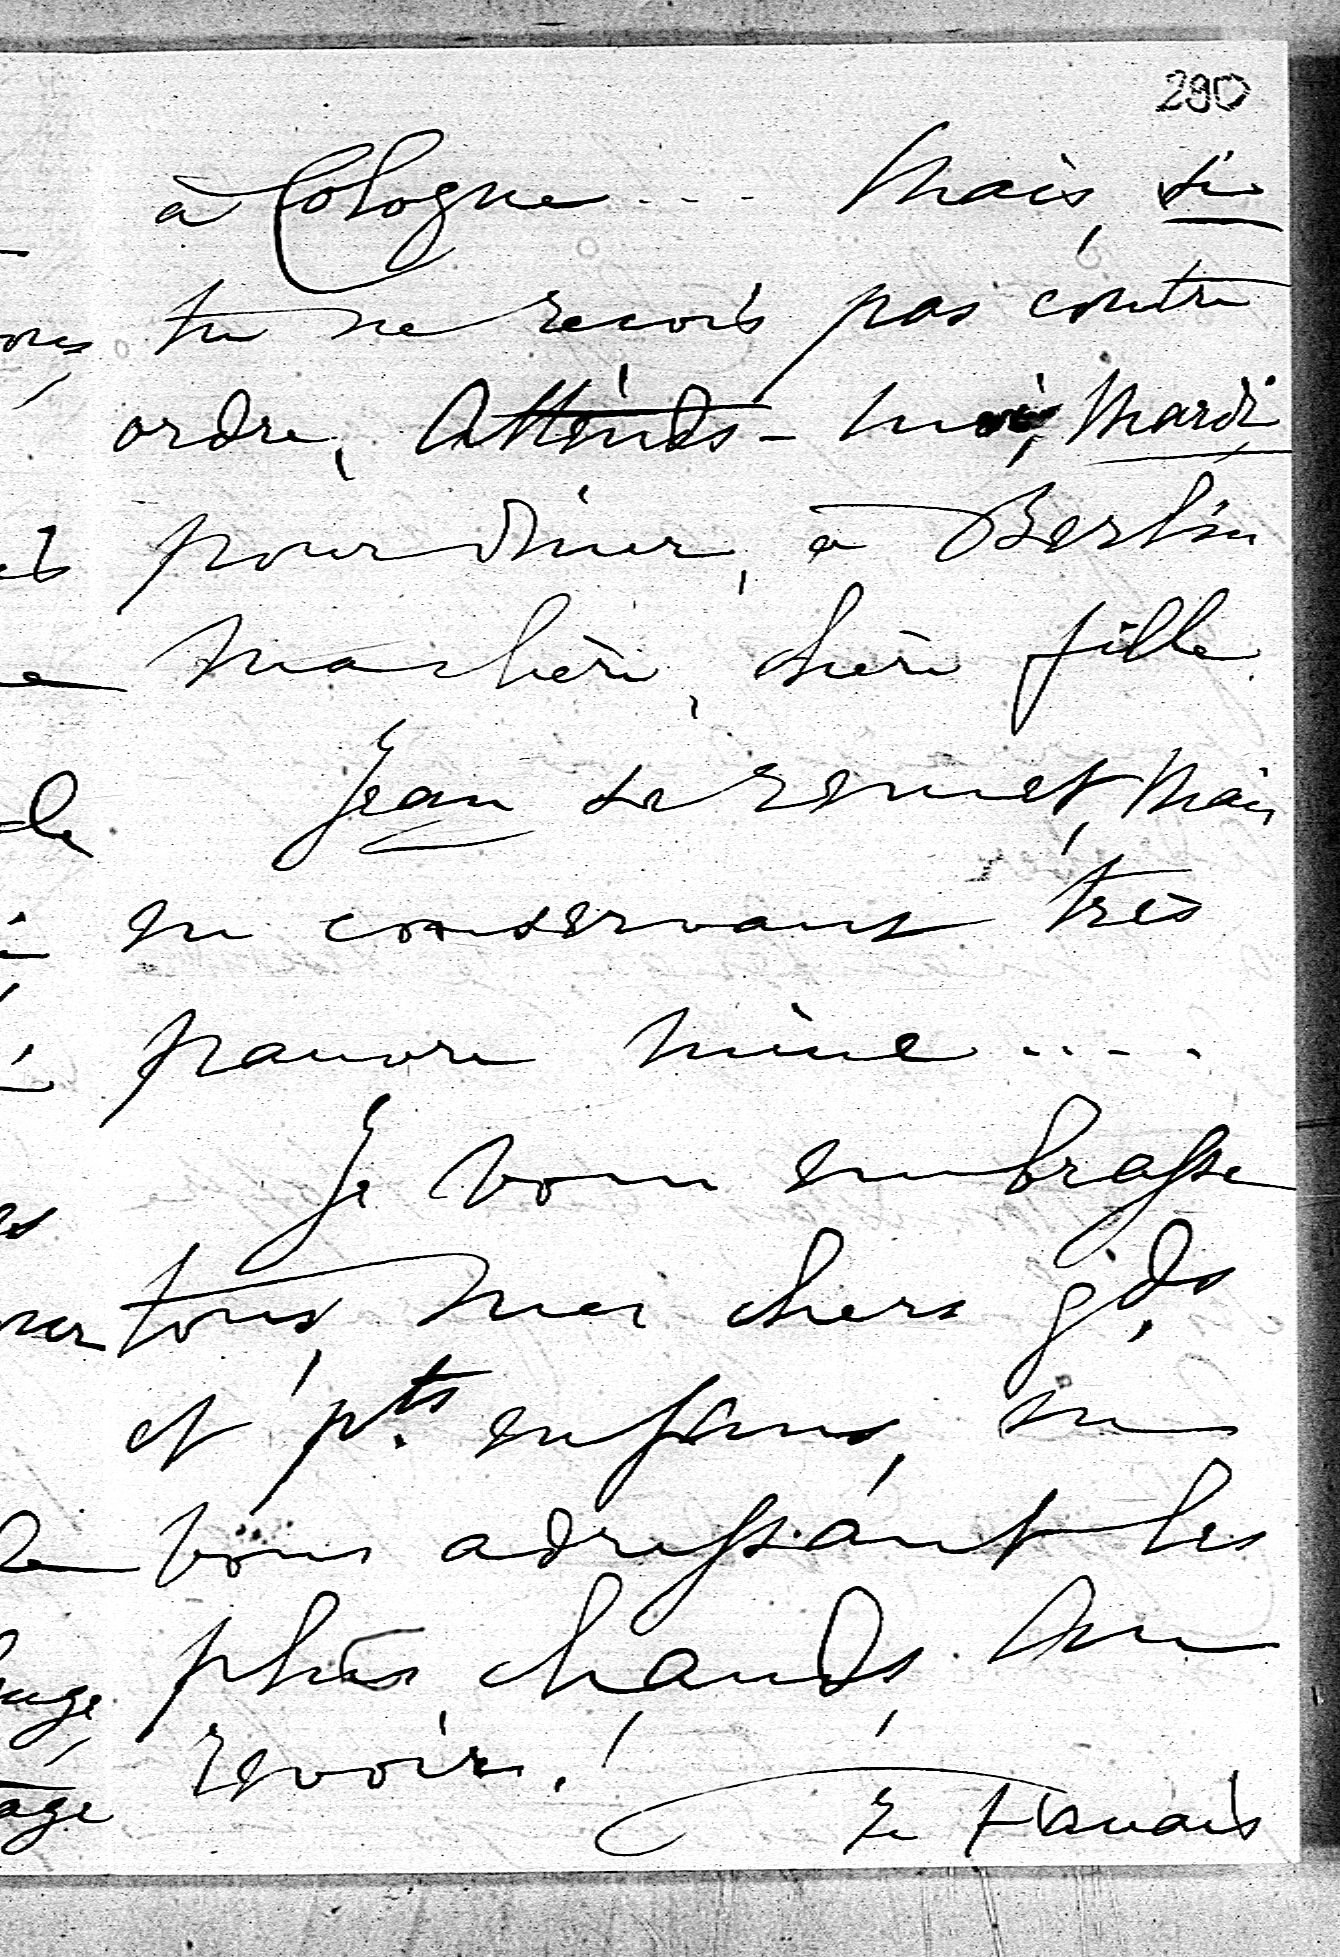 290
à Cologne.... Mais, si
tu ne recois pas contre
ordre, Attends-moi, Mardi,
pour diner, à Berlin
ma chère, chère fille.
Jean se remet, mais
en conservant très
pauvre mine....
Je vous embrasse
tous, mes chers g.ds
et p.ts enfans, en
vous adressant les
plus chauds au
revoir!